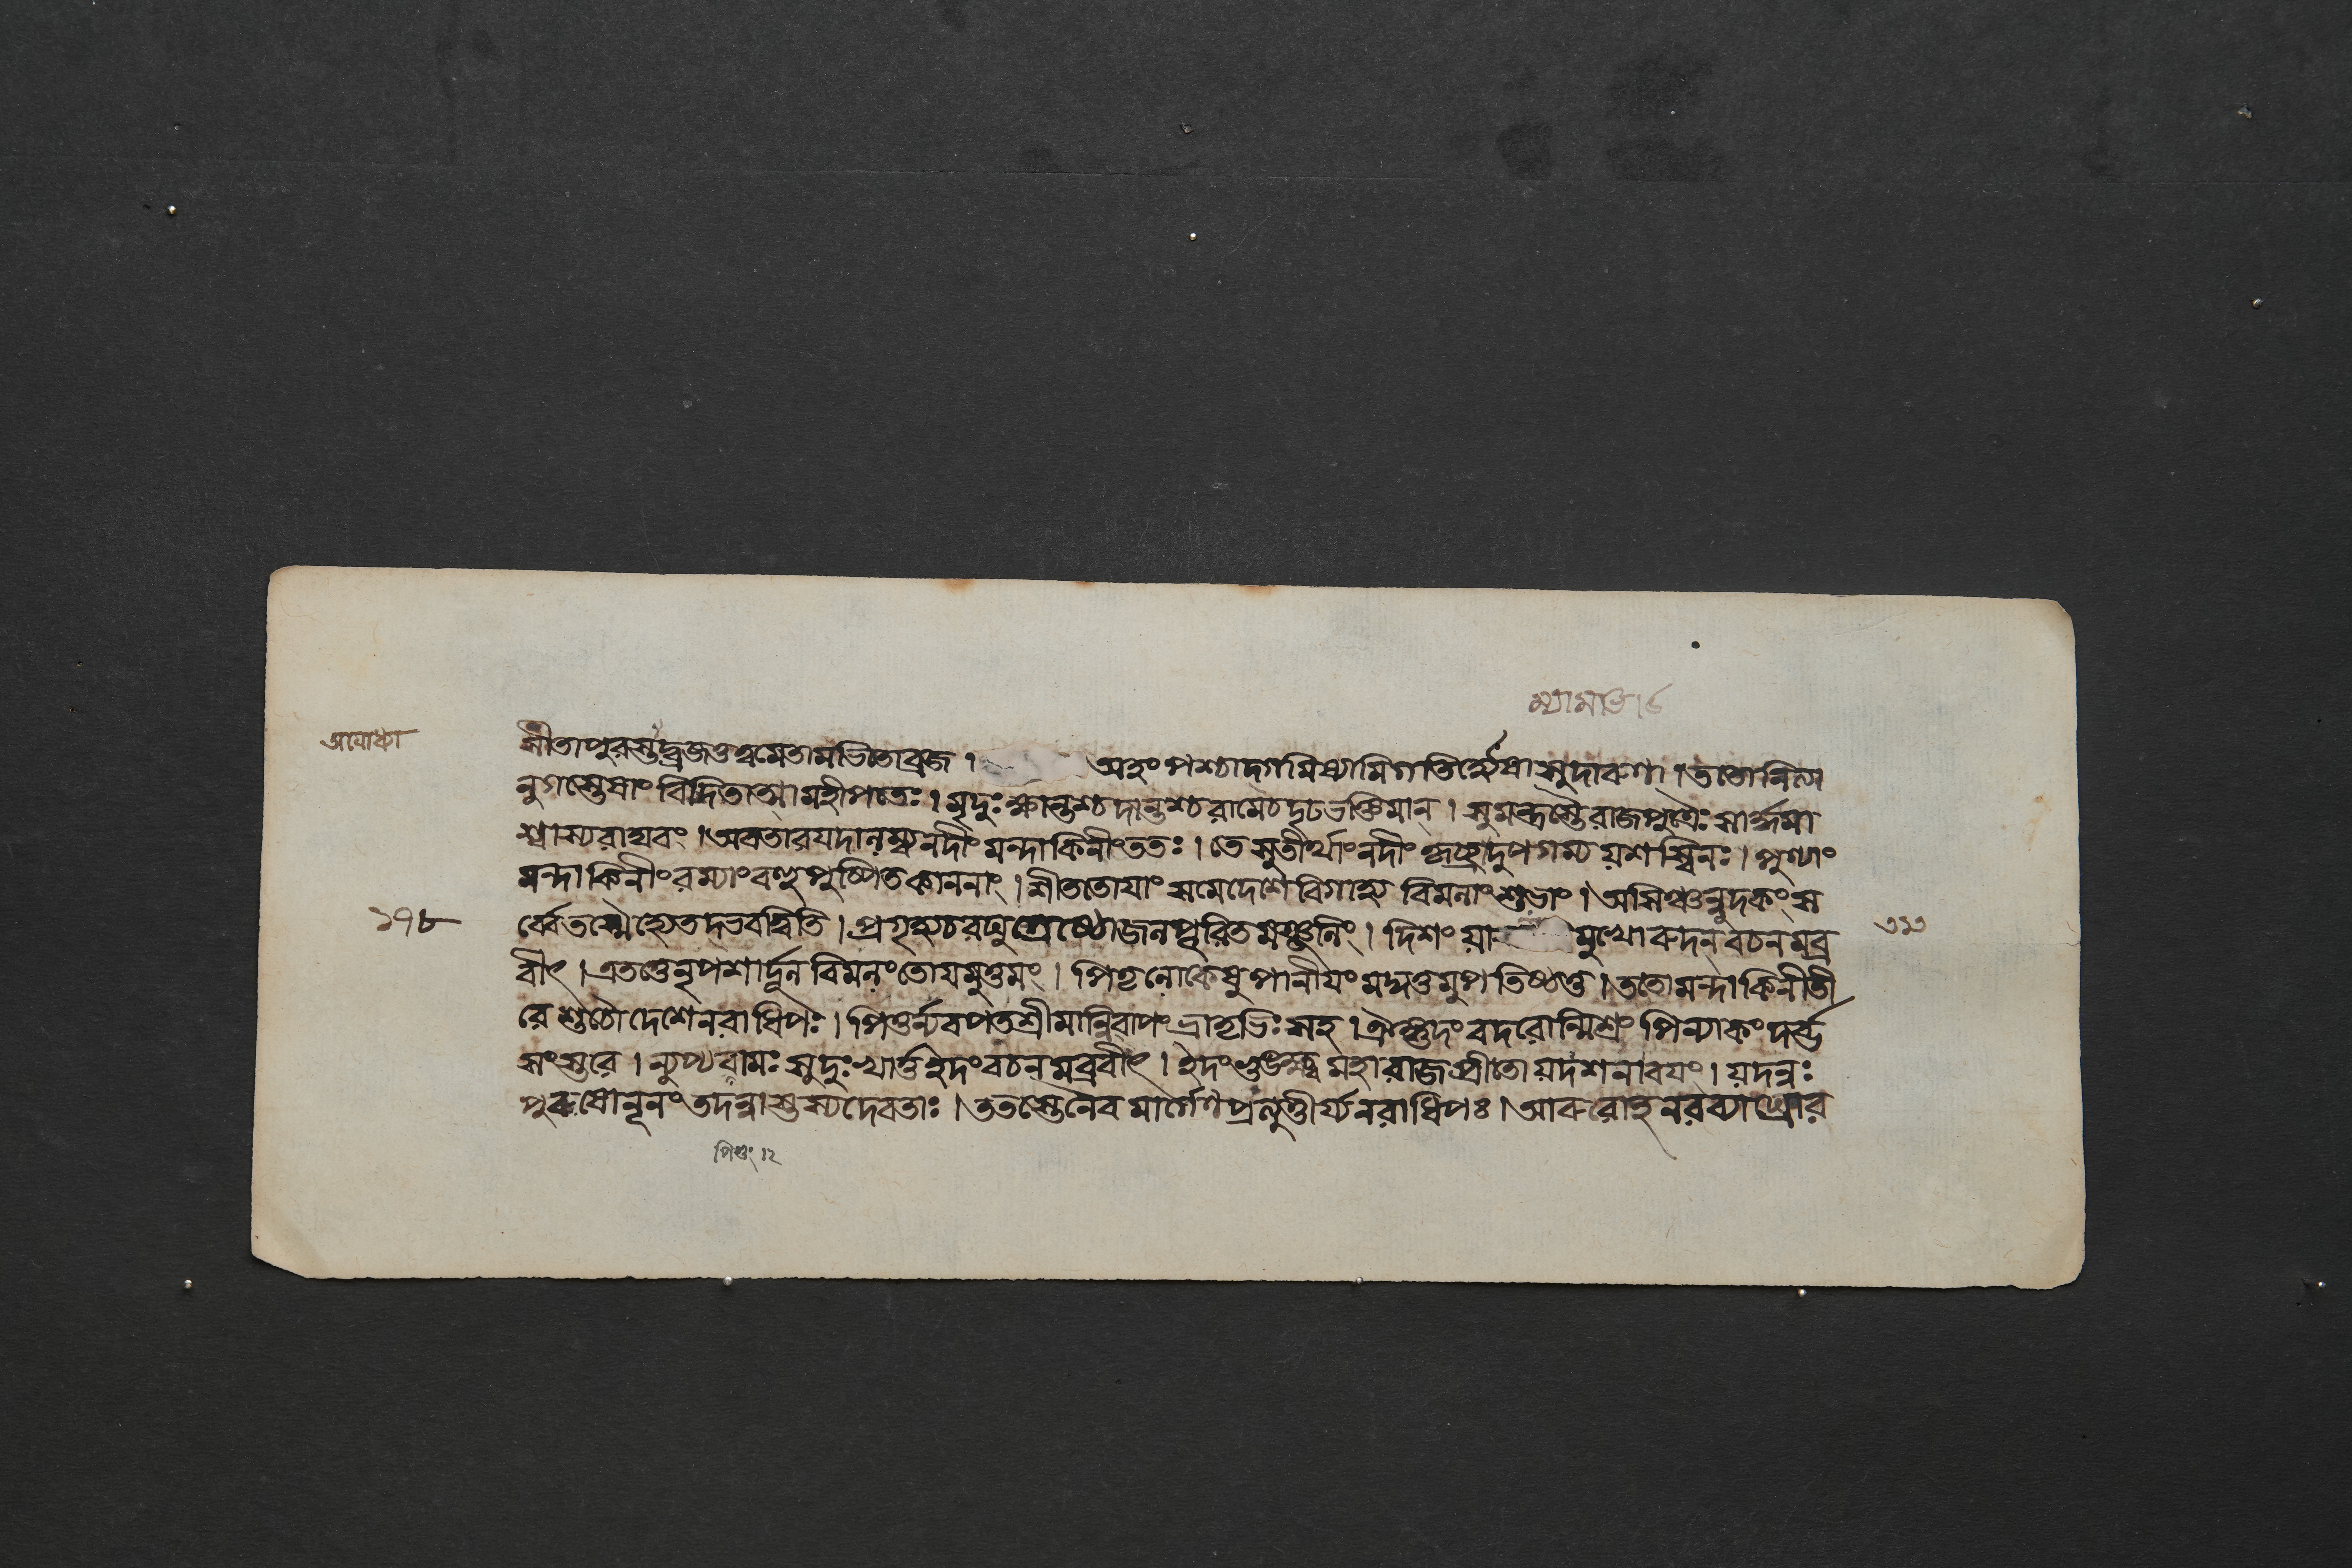 ম্যামাভা৬
অযোধ্যা
সীতাপুরস্তাদ্ব্রজতুত্বমেতামভিতোব্রজ । অহংপশ্চাদ্গমিষ্যামিগতির্হ্যেষাসুদারুণা । ততোনিত্যা
নুগস্তেষাংবিদিতাত্মামহীপতেঃ । মৃদুঃক্ষান্তশ্চদান্তশ্চরামেচদৃঢভক্তিমান্ । সুমন্ত্রস্তৈরাজপুত্রৈঃসার্দ্ধমা
শ্বাস্যরাঘবং । অবতারযদালম্ব্যনদীংমন্দাকিনীংততঃ । তেসুতীর্থাংনদীংকৃচ্ছ্রাদুপগম্যযশস্বিনঃ । পুণ্যাং
মন্দাকিনীংরম্যাংবহুপুষ্পিতকাননাং । শীততোযাংসমেদেশেবিগাহ্য বিমলাংশুভাং । অসিঞ্চন্নুদকংস
র্ব্বেতস্মৈহ্যেতদ্ভবত্বিতি । প্রগৃহ্যচরঘুশ্রেষ্ঠোজলপূরিতমঞ্জলিং । দিশংযা মুখোরুদন্বচনমব্র
১৭৮
৩১৩
বীৎ । এতত্তেনৃপশার্দূলবিমলংতোযমুত্তমং । পিতৃলোকেষুপানীযংমদ্দত্তমুপতিষ্ঠতু । ততোমন্দাকিনীতী
রেশুচৌদেশেনরাধিপঃ । পিতুর্ন্যবপতশ্রীমান্নিবাপংভ্রাতৃভিঃসহ । ঐঙ্গুদংবদরোন্মিশ্রংপিন্যাকংদর্ভ
সংস্তরে । ন্যুপ্যরামঃসুদুঃখার্ত্তইদংবচনমব্রবীৎ । ইদংভুঙ্ক্ষ্বমহারাজপ্রীতোযদশনাবযং । যদন্নঃ
পুরুষোনূনংতদন্নাস্তস্যদেবতাঃ । ততস্তেনৈবমার্গেণপ্রত্যুত্তীর্য্যনরাধিপঃ । আরুরোহনরব্যাঘ্রোর
পিণ্ডং ।২